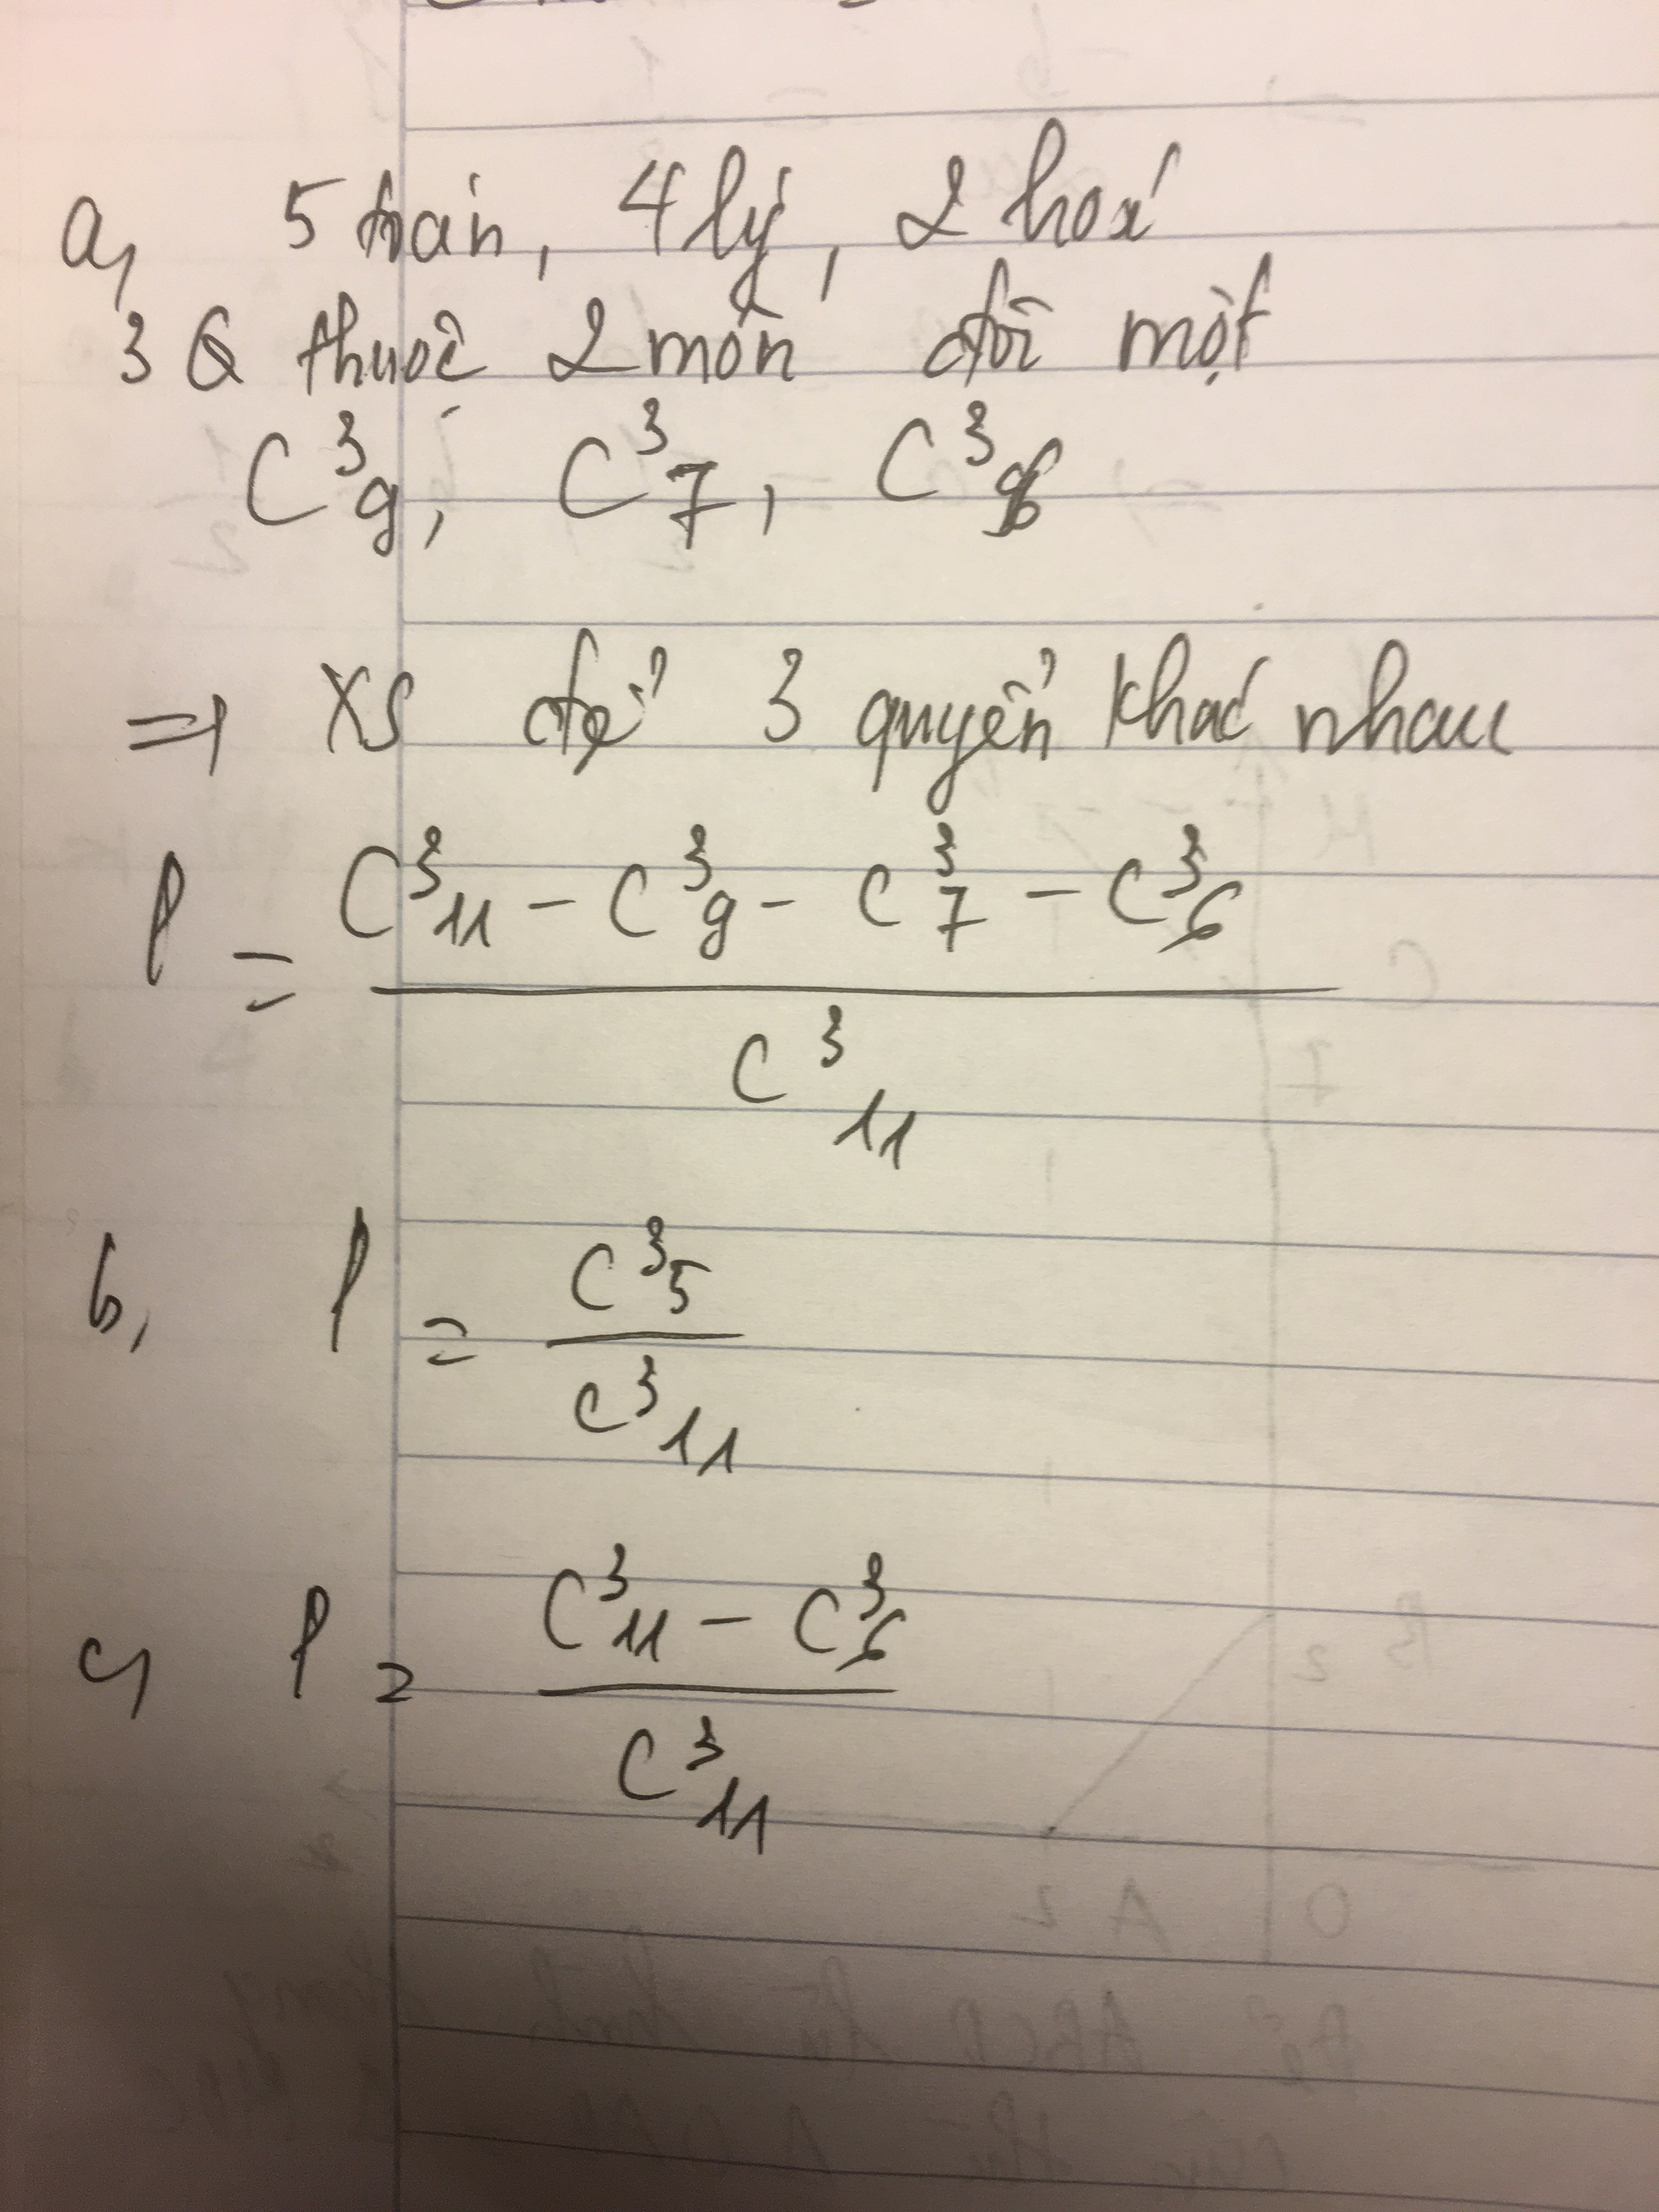 a, 5 toán, 4 lý, 2 hoá
3 Q thuộc 2 môn đôi một
C³₉, C³₇, C³₆
=> XS để 3 quyển khác nhau
P = (C³₁₁ - C³₉ - C³₇ - C³₆) / C³₁₁
b, P = C³₅ / C³₁₁
c, P = (C³₁₁ - C³₆) / C³₁₁